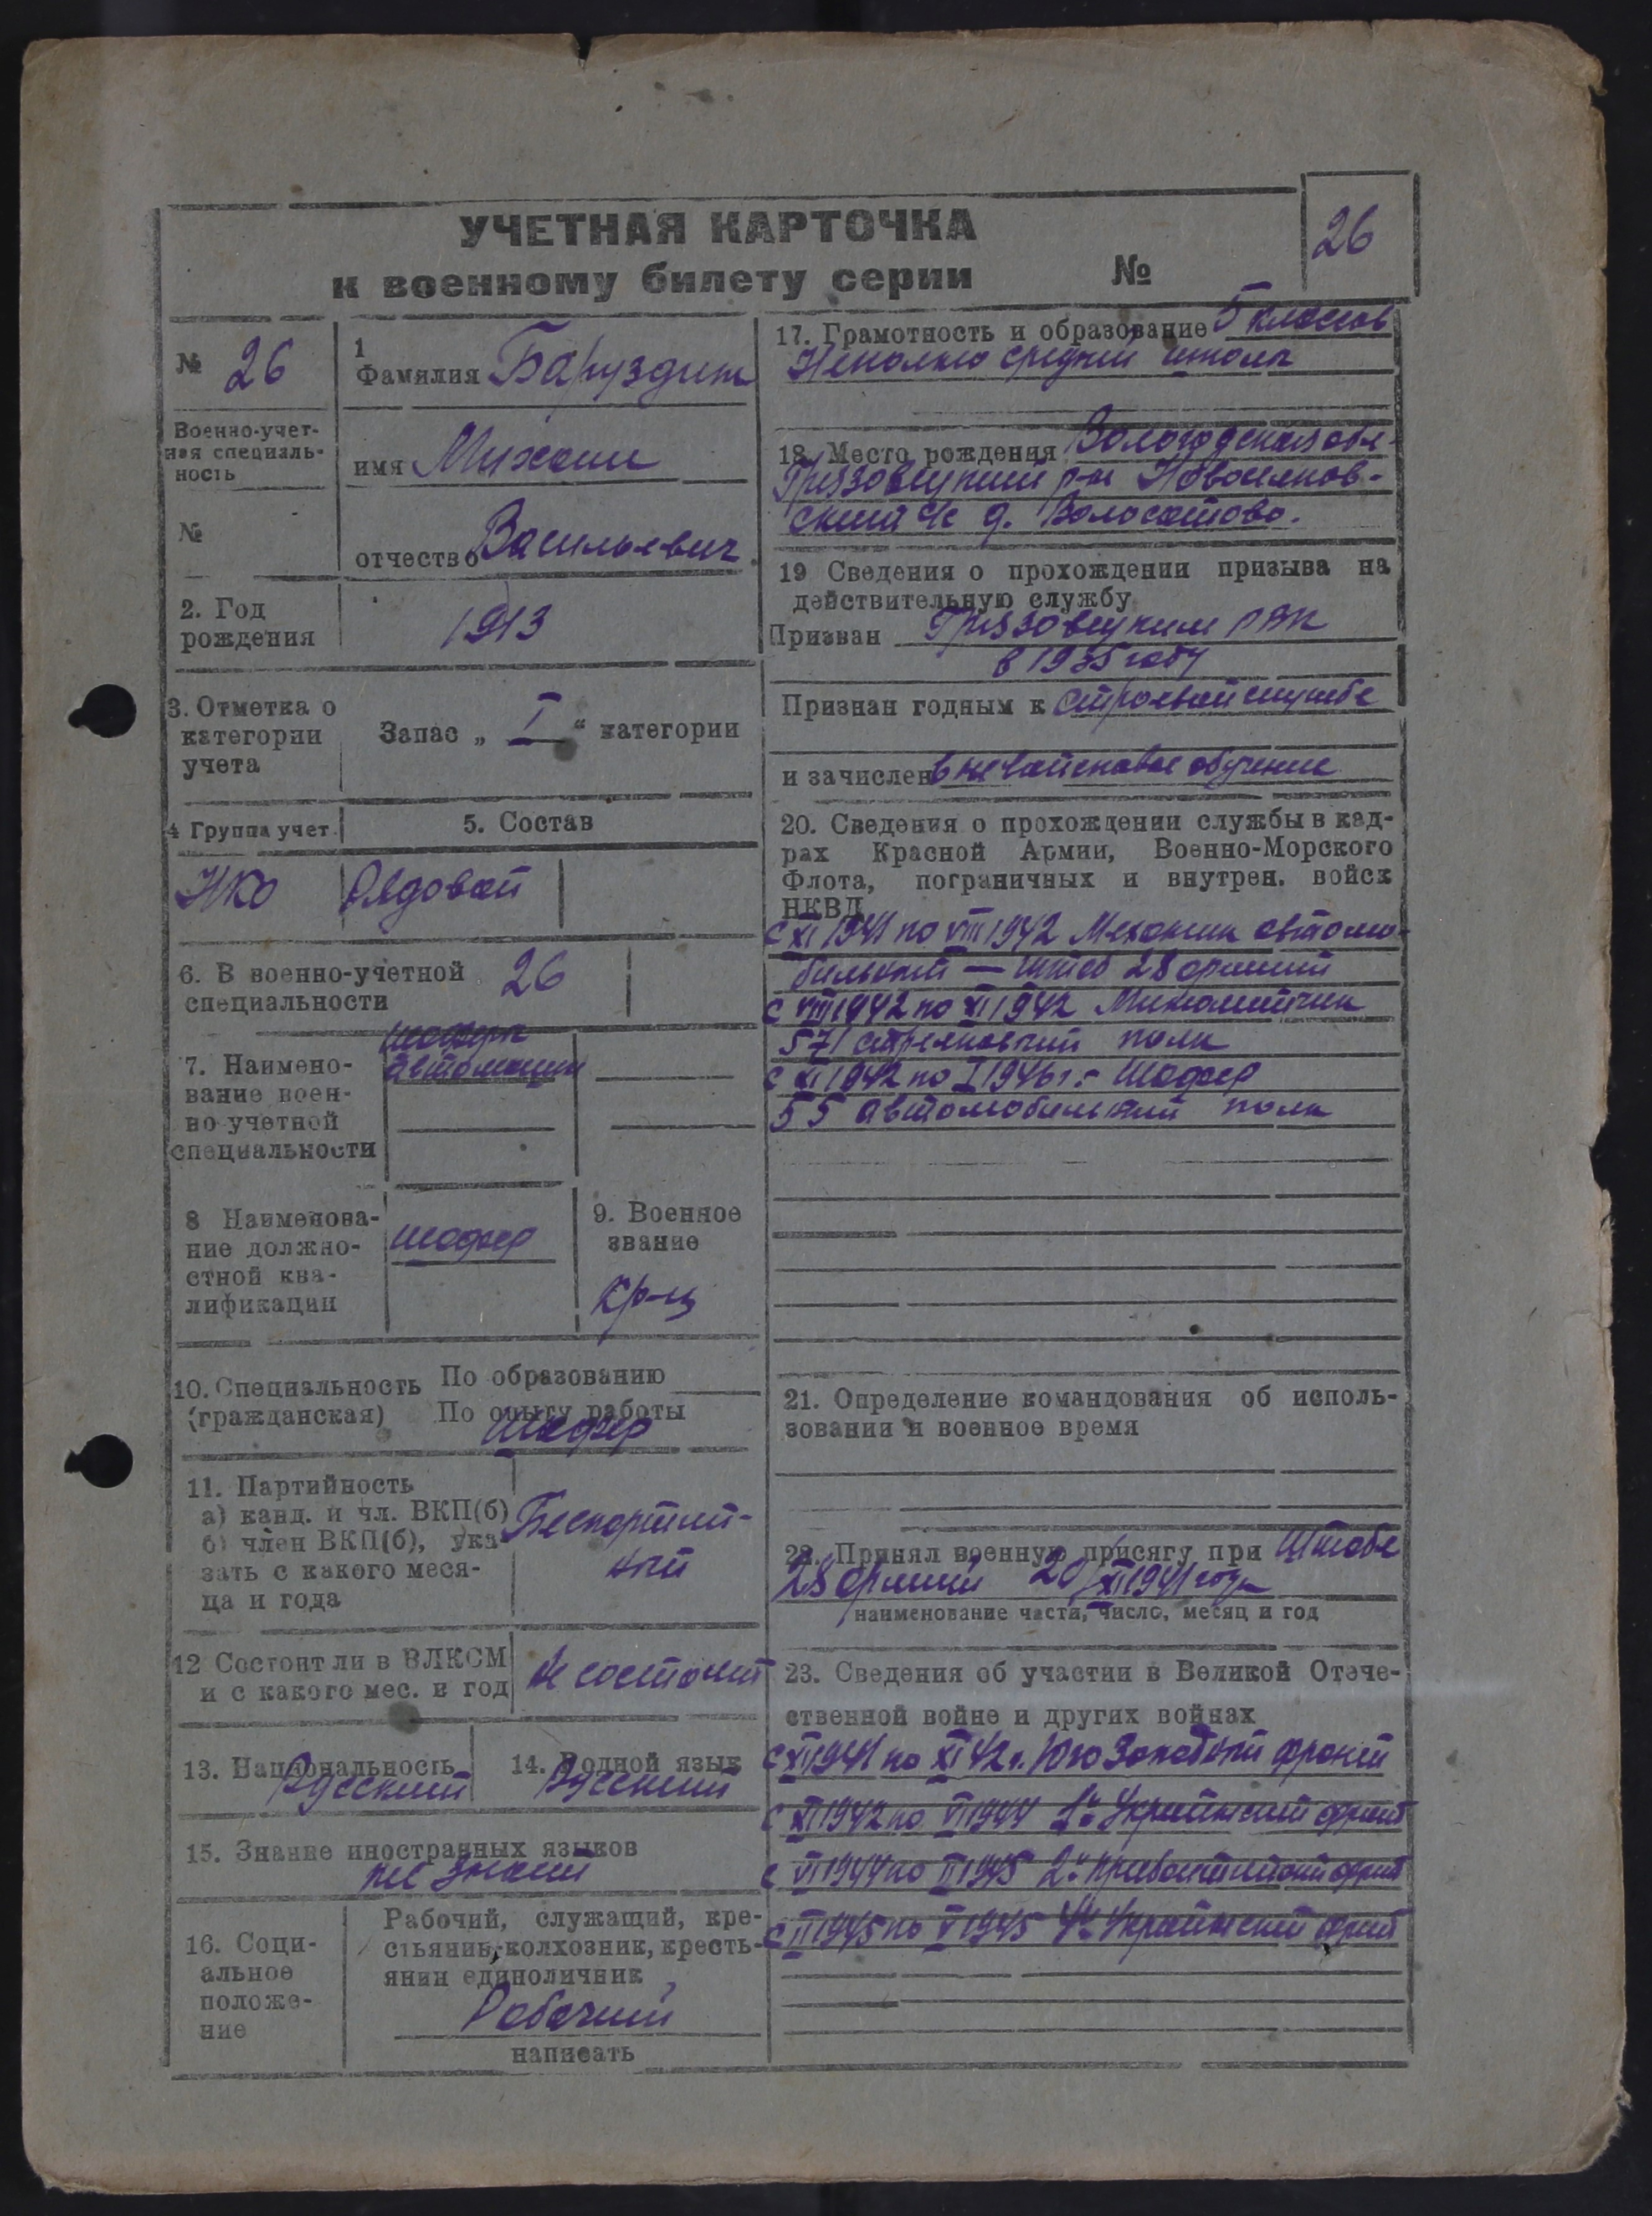 УЧЕТНАЯ КАРТОЧКА
к военному билету серии №
26
№ 26
Военно-учет-
ная специаль-
ность
№
1
Фамилия Баруздин
имя Михаил
отчество Васильевич
2. Год
рождения
1913
3. Отметка о
категории
учета
Запас „ I " категории
4 Группа учет.
5. Состав
НКО
Рядовой
6. В военно-учетной
специальности
26
7. Наимено-
вание воен-
но-учетной
специальности
шофера
автомашин
8 Наименова-
ние должно-
стной ква-
лификации
шофер
9. Военное
звание
кр-ц
10. Специальность
(гражданская)
По образованию
По опыту работы
Шофер
11. Партийность
а) канд. и чл. ВКП(б)
б) член ВКП(б), ука-
зать с какого меся-
ца и года
Беспартий-
ный
12 Состоит ли в ВЛКСМ
и с какого мес. и год
Не состоит
13. Национальность
Русский
14. Родной язык
Русский
15. Знание иностранных языков
не знает
16. Соци-
альное
положе-
ние
Рабочий, служащий, кре-
стьянин, колхозник, кресть-
янин единоличник
Рабочий
написать
17. Грамотность и образование 5 классов
Неполно средней школы
18. Место рождения Вологодская обл.
Грязовецкий р-н
ский с/с д. Волосатово.
19 Сведения о прохождении призыва на
действительную службу
Призван Грязовецким РВК
в 1935 году
Признан годным к строевой службе
и зачислен вневойсковое обучение
20. Сведения о прохождении службы в кад-
рах Красной Армии, Военно-Морского
Флота, пограничных и внутрен. войск
НКВД
с XI 1941 по VIII 1942 Механик автомо-
бильный — штаб 28 армии
с VIII 1942 по XI 1942 Минометчик
571 стрелковый полк
с XI 1942 по I 1946 г. - Шофер
55 автомобильный полк
21. Определение командования об исполь-
зовании в военное время
22. Принял военную присягу при Штабе
28 армии 20/XI 1941 года
наименование части, число, месяц и год
23. Сведения об участии в Великой Отече-
ственной войне и других войнах
с XI 1941 по XI 42 г. Юго Западный фронт
с XI 1942 по VI 1944 1й Украинский фронт
с VI 1944 по II 1945 2й Прибалтийский фронт
с II 1945 по V 1945 4й Украинский фронт